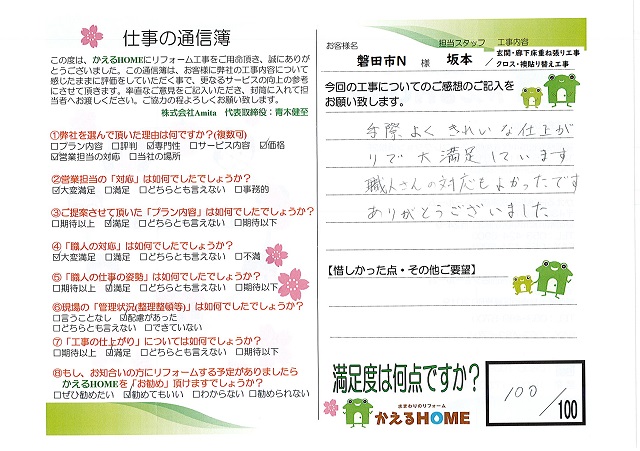 仕事の通信簿
この度は、かえるHOMEにリフォーム工事をご用命頂き、誠にありが
とうございました。この通信簿は、お客様に弊社の工事内容について
感じたままに評価をしていただく事で、更なるサービスの向上の参考
にさせて頂きます。率直なご意見をご記入いただき、封筒に入れて担
当者へお渡しください。ご協力の程よろしくお願い致します。
株式会社Amita 代表取締役：青木健至
①弊社を選んで頂いた理由は何ですか？(複数可)
□プラン内容 □評判 ☑専門性 □サービス内容 ☑価格
☑営業担当の対応 □当社の場所
②営業担当の「対応」は如何でしたでしょうか？
☑大変満足 □満足 □どちらとも言えない □事務的
③ご提案させて頂いた「プラン内容」は如何でしたでしょうか？
□期待以上 ☑満足 □どちらとも言えない □期待以下
④「職人の対応」は如何でしたでしょうか？
☑大変満足 □満足 □どちらとも言えない □不満
⑤「職人の仕事の姿勢」は如何でしたでしょうか？
□期待以上 ☑満足 □どちらとも言えない □期待以下
⑥現場の「管理状況(整理整頓等)」は如何でしたでしょうか？
□言うことなし ☑配慮があった
□どちらとも言えない □できていない
⑦「工事の仕上がり」については如何でしたでしょうか？
□期待以上 ☑満足 □どちらとも言えない □期待以下
⑧もし、お知合いの方にリフォームする予定がありましたら
かえるHOMEを「お勧め」頂けますでしょうか？
□ぜひ勧めたい ☑勧めてもいい □わからない □勧められない
お客様名 担当スタッフ 工事内容
磐田市N 様 坂本 / 玄関・廊下床重ね張り工事
クロス・襖貼り替え工事
今回の工事についてのご感想のご記入を
お願い致します。
手際よく きれいな仕上が
りで大満足しています
職人さんの対応もよかったです
ありがとうございました
【惜しかった点・その他ご要望】
満足度は何点ですか？
100/100
水まわりのリフォーム
かえるHOME